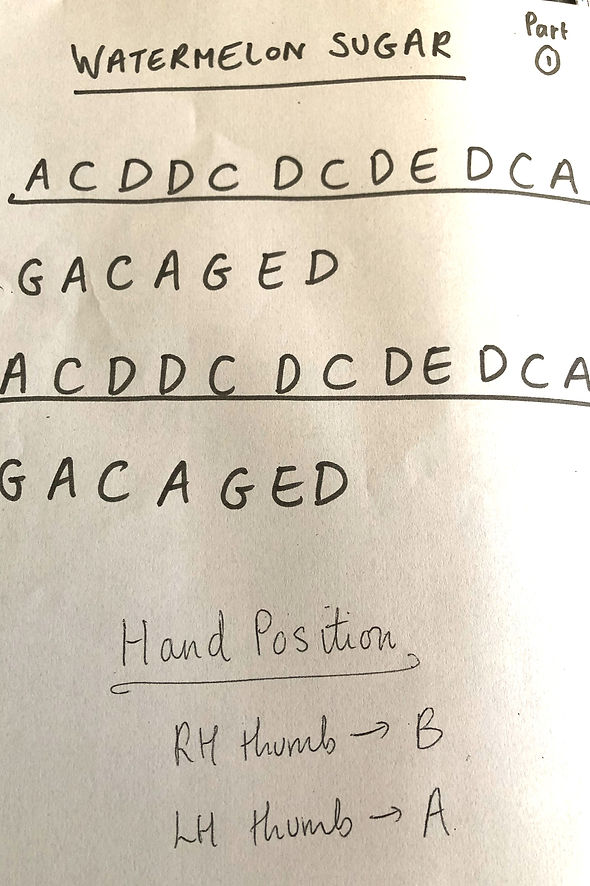 WATERMELON SUGAR
Part
1
A C D D C D C D E D C A
G A C A G E D
A C D D C D C D E D C A
G A C A G E D
Hand Position
RH thumb → B
LH thumb → A